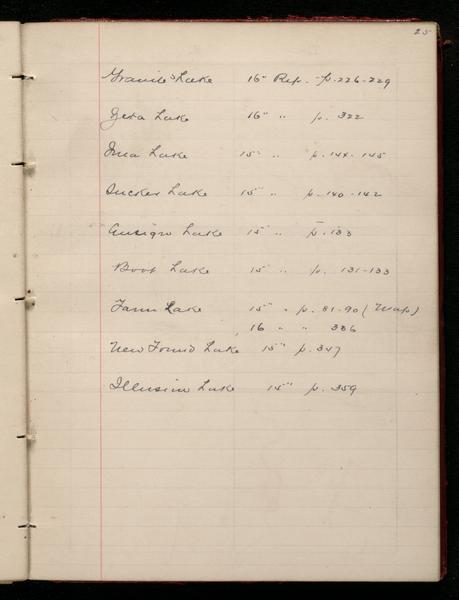 25
Granite Lake 16" Rep. p. 226-229
Geta Lake 16" " p. 322
Ima Lake 15" " p. 144-145
Sucker Lake 15" " p. 140-142
Ensign Lake 15" " p. 133
Boot Lake 15" " p. 131-133
Farm Lake 15" " p. 81-90 (Map)
16 " " 336
New Found Lake 15" p. 347
Illusion Lake 15" p. 359